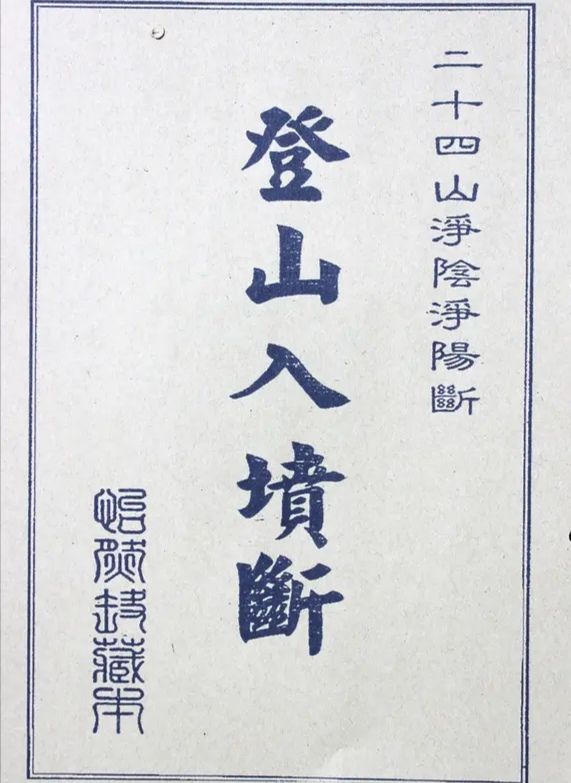 二十四山淨陰淨陽斷
登山入墳斷
藏本